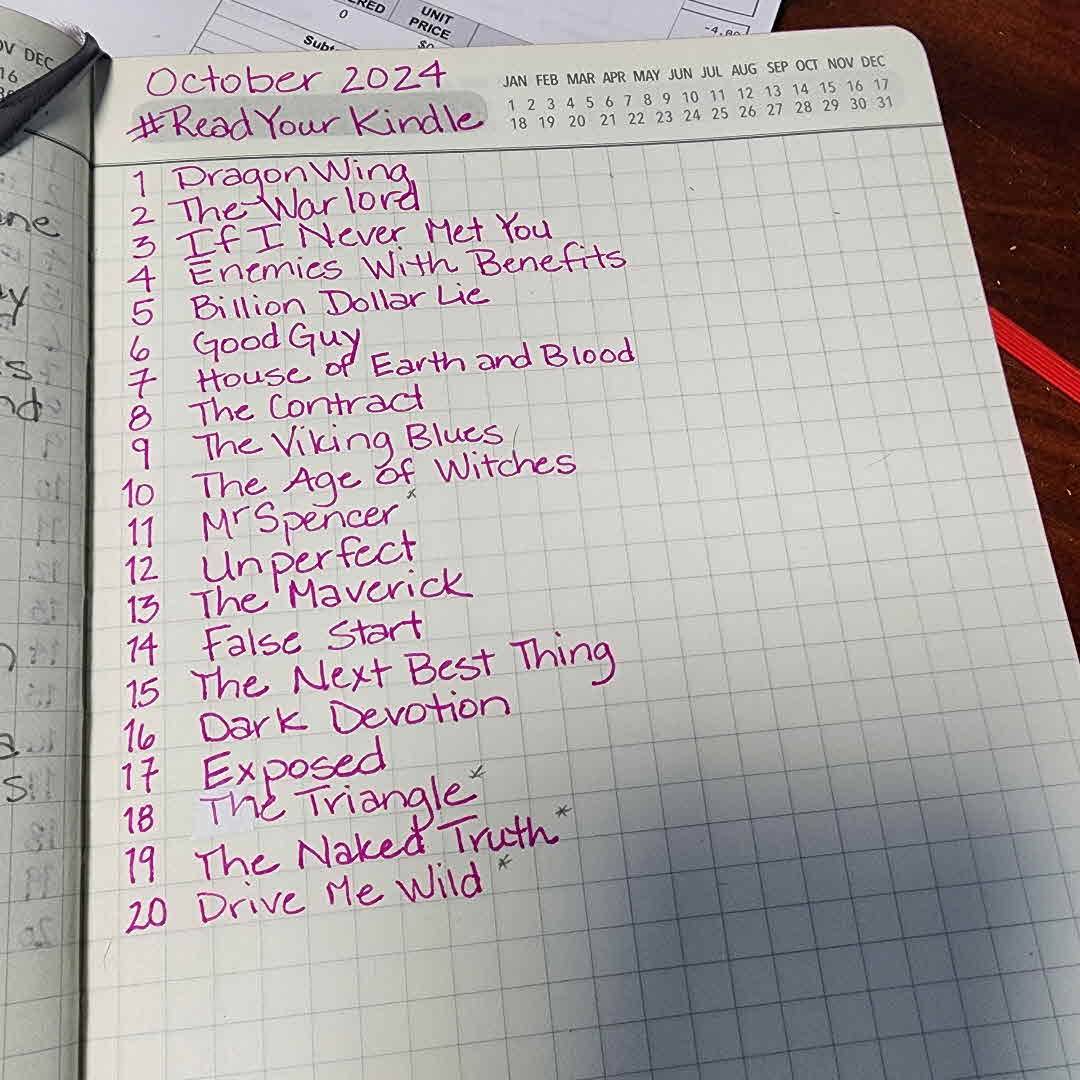 OV DEC
16
RED
0
UNIT
PRICE
-4.80
October 2024
#ReadYour Kindle
JAN FEB MAR APR MAY JUN JUL AUG SEP OCT NOV DEC
1 2 3 4 5 6 7 8 9 10 11 12 13 14 15 16 17
18 19 20 21 22 23 24 25 26 27 28 29 30 31
1 DragonWing
2 The Warlord
3 If I Never Met You
4 Enemies With Benefits
5 Billion Dollar Lie
6 Good Guy
7 House of Earth and Blood
8 The Contract
9 The Viking Blues
10 The Age of Witches
11 Mr Spencer *
12 Unperfect
13 The Maverick
14 False Start
15 The Next Best Thing
16 Dark Devotion
17 Exposed
18 The Triangle *
19 The Naked Truth *
20 Drive Me Wild *